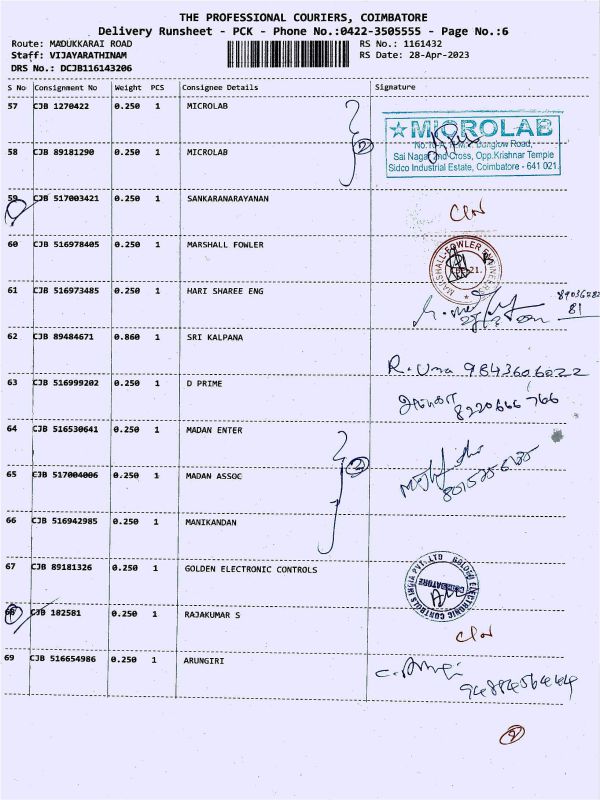 THE PROFESSIONAL COURIERS, COIMBATORE
Delivery Runsheet - PCK - Phone No.:0422-3505555 - Page No.:6
Route: MADUKKARAI ROAD
RS No.: 1161432
Staff: VIJAYARATHINAM
RS Date: 28-Apr-2023
DRS No.: DCJB116143206
S No Consignment No Weight PCS Consignee Details Signature
57 CJB 1270422 0.250 1 MICROLAB
MICROLAB
58 CJB 89181290 0.250 1 MICROLAB
2
Sai Nagar IInd Cross, Opp.Krishnar Temple
Sidco Industrial Estate, Coimbatore - 641 021.
59 CJB 517003421 0.250 1 SANKARANARAYANAN
60 CJB 516978405 0.250 1 MARSHALL FOWLER
61 CJB 516973485 0.250 1 HARI SHAREE ENG
62 CJB 89484671 0.860 1 SRI KALPANA
R. Uma 9843606022
63 CJB 516999202 0.250 1 D PRIME
8220666766
64 CJB 516530641 0.250 1 MADAN ENTER
65 CJB 517004006 0.250 1 MADAN ASSOC
2
66 CJB 516942985 0.250 1 MANIKANDAN
67 CJB 89181326 0.250 1 GOLDEN ELECTRONIC CONTROLS
GOLDEN ELECTRONIC CONTROLS INDIA PVT. LTD
COIMBATORE
68 CJB 182581 0.250 1 RAJAKUMAR S
69 CJB 516654986 0.250 1 ARUNGIRI
2